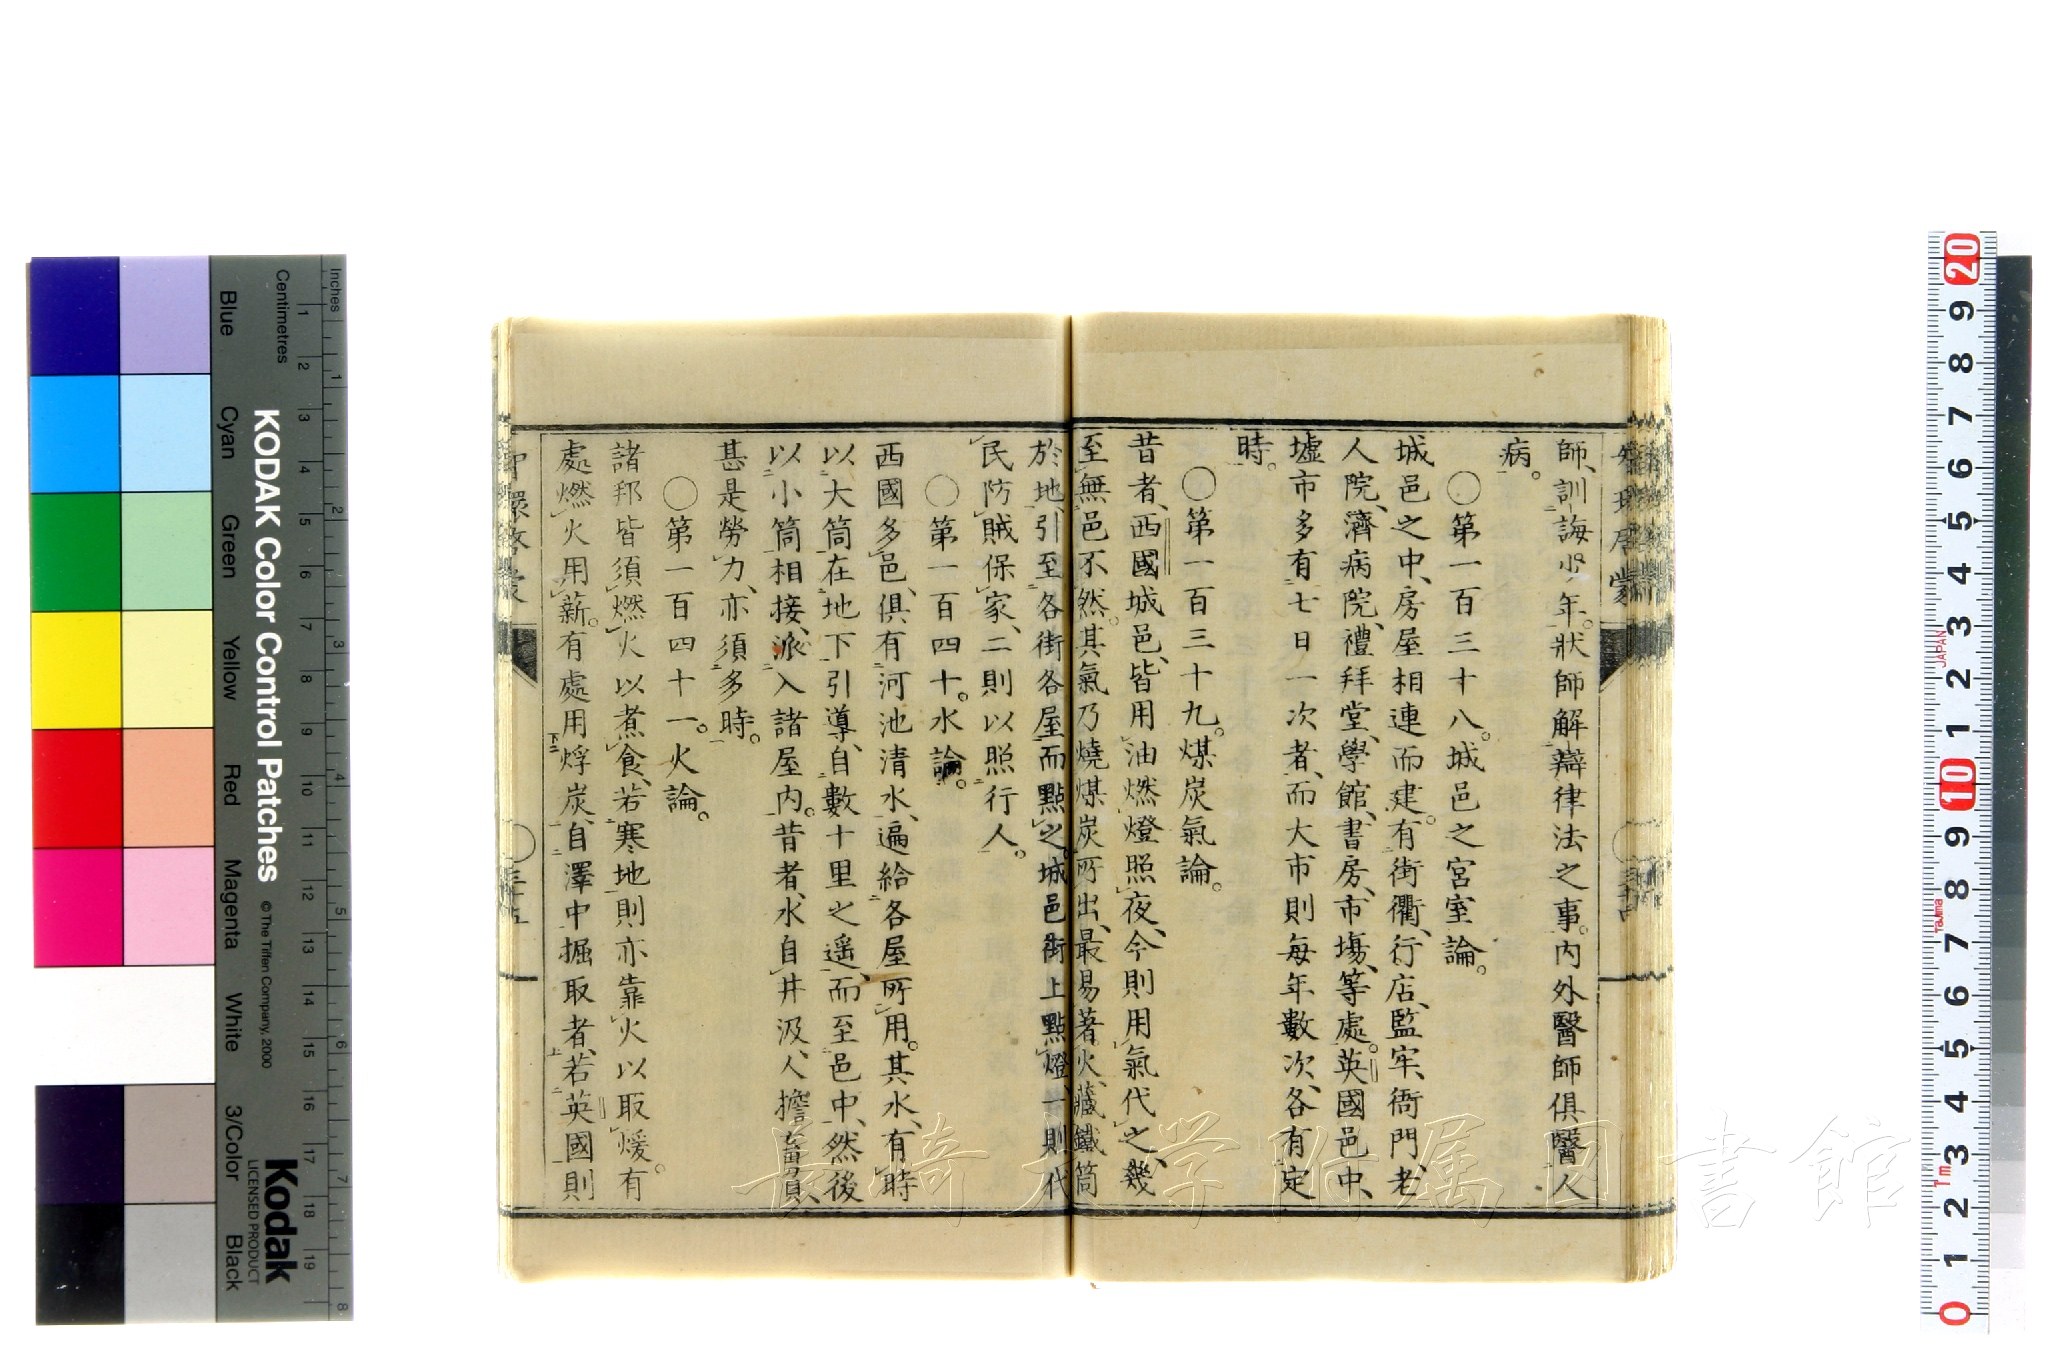 師、訓誨少年。狀師解辯律法之事。內外醫師俱醫人
病。
〇第一百三十八。城邑之宮室論。
城邑之中、房屋相連而建。有街衢、行店、監牢、衙門、老
人院、濟病院、禮拜堂、學館、書房、市塲、等處。英國邑中、
墟市多有七日一次者、而大市則每年數次、各有定
時。
〇第一百三十九。煤炭氣論。
昔者、西國城邑、皆用油燃燈照夜、今則用氣代之、幾
至無邑不然。其氣乃燒煤炭所出、最易著火、藏鐵筒
於地、引至各街各屋而點之、城邑街上點燈、一則代
民防賊保家、二則以照行人。
〇第一百四十。水論。
西國多邑、俱有河池清水、遍給各屋所用。其水、有時
以大筒在地下引導、自數十里之遥、而至邑中、然後
以小筒相接、派入諸屋內。昔者、水自井汲、人擔畜負、
甚是勞力、亦須多時。
〇第一百四十一。火論。
諸邦皆須燃火以煮食、若寒地則亦靠火以取煖。有
處燃火用薪。有處用烰炭、自澤中掘取者、若英國則
〇三十五
長崎大学附属図書館
KODAK Color Control Patches
© The Tiffen Company, 2000
Kodak
LICENSED PRODUCT
Inches
Centimetres
Blue
Cyan
Green
Yellow
Red
Magenta
White
3/Color
Black
1 2 3 4 5 6 7 8 9 10 11 12 13 14 15 16 17 18 19
1 2 3 4 5 6 7 8
20 9 8 7 6 5 4 3 2 1 10 9 8 7 6 5 4 3 2 1 0
JAPAN
Tajima